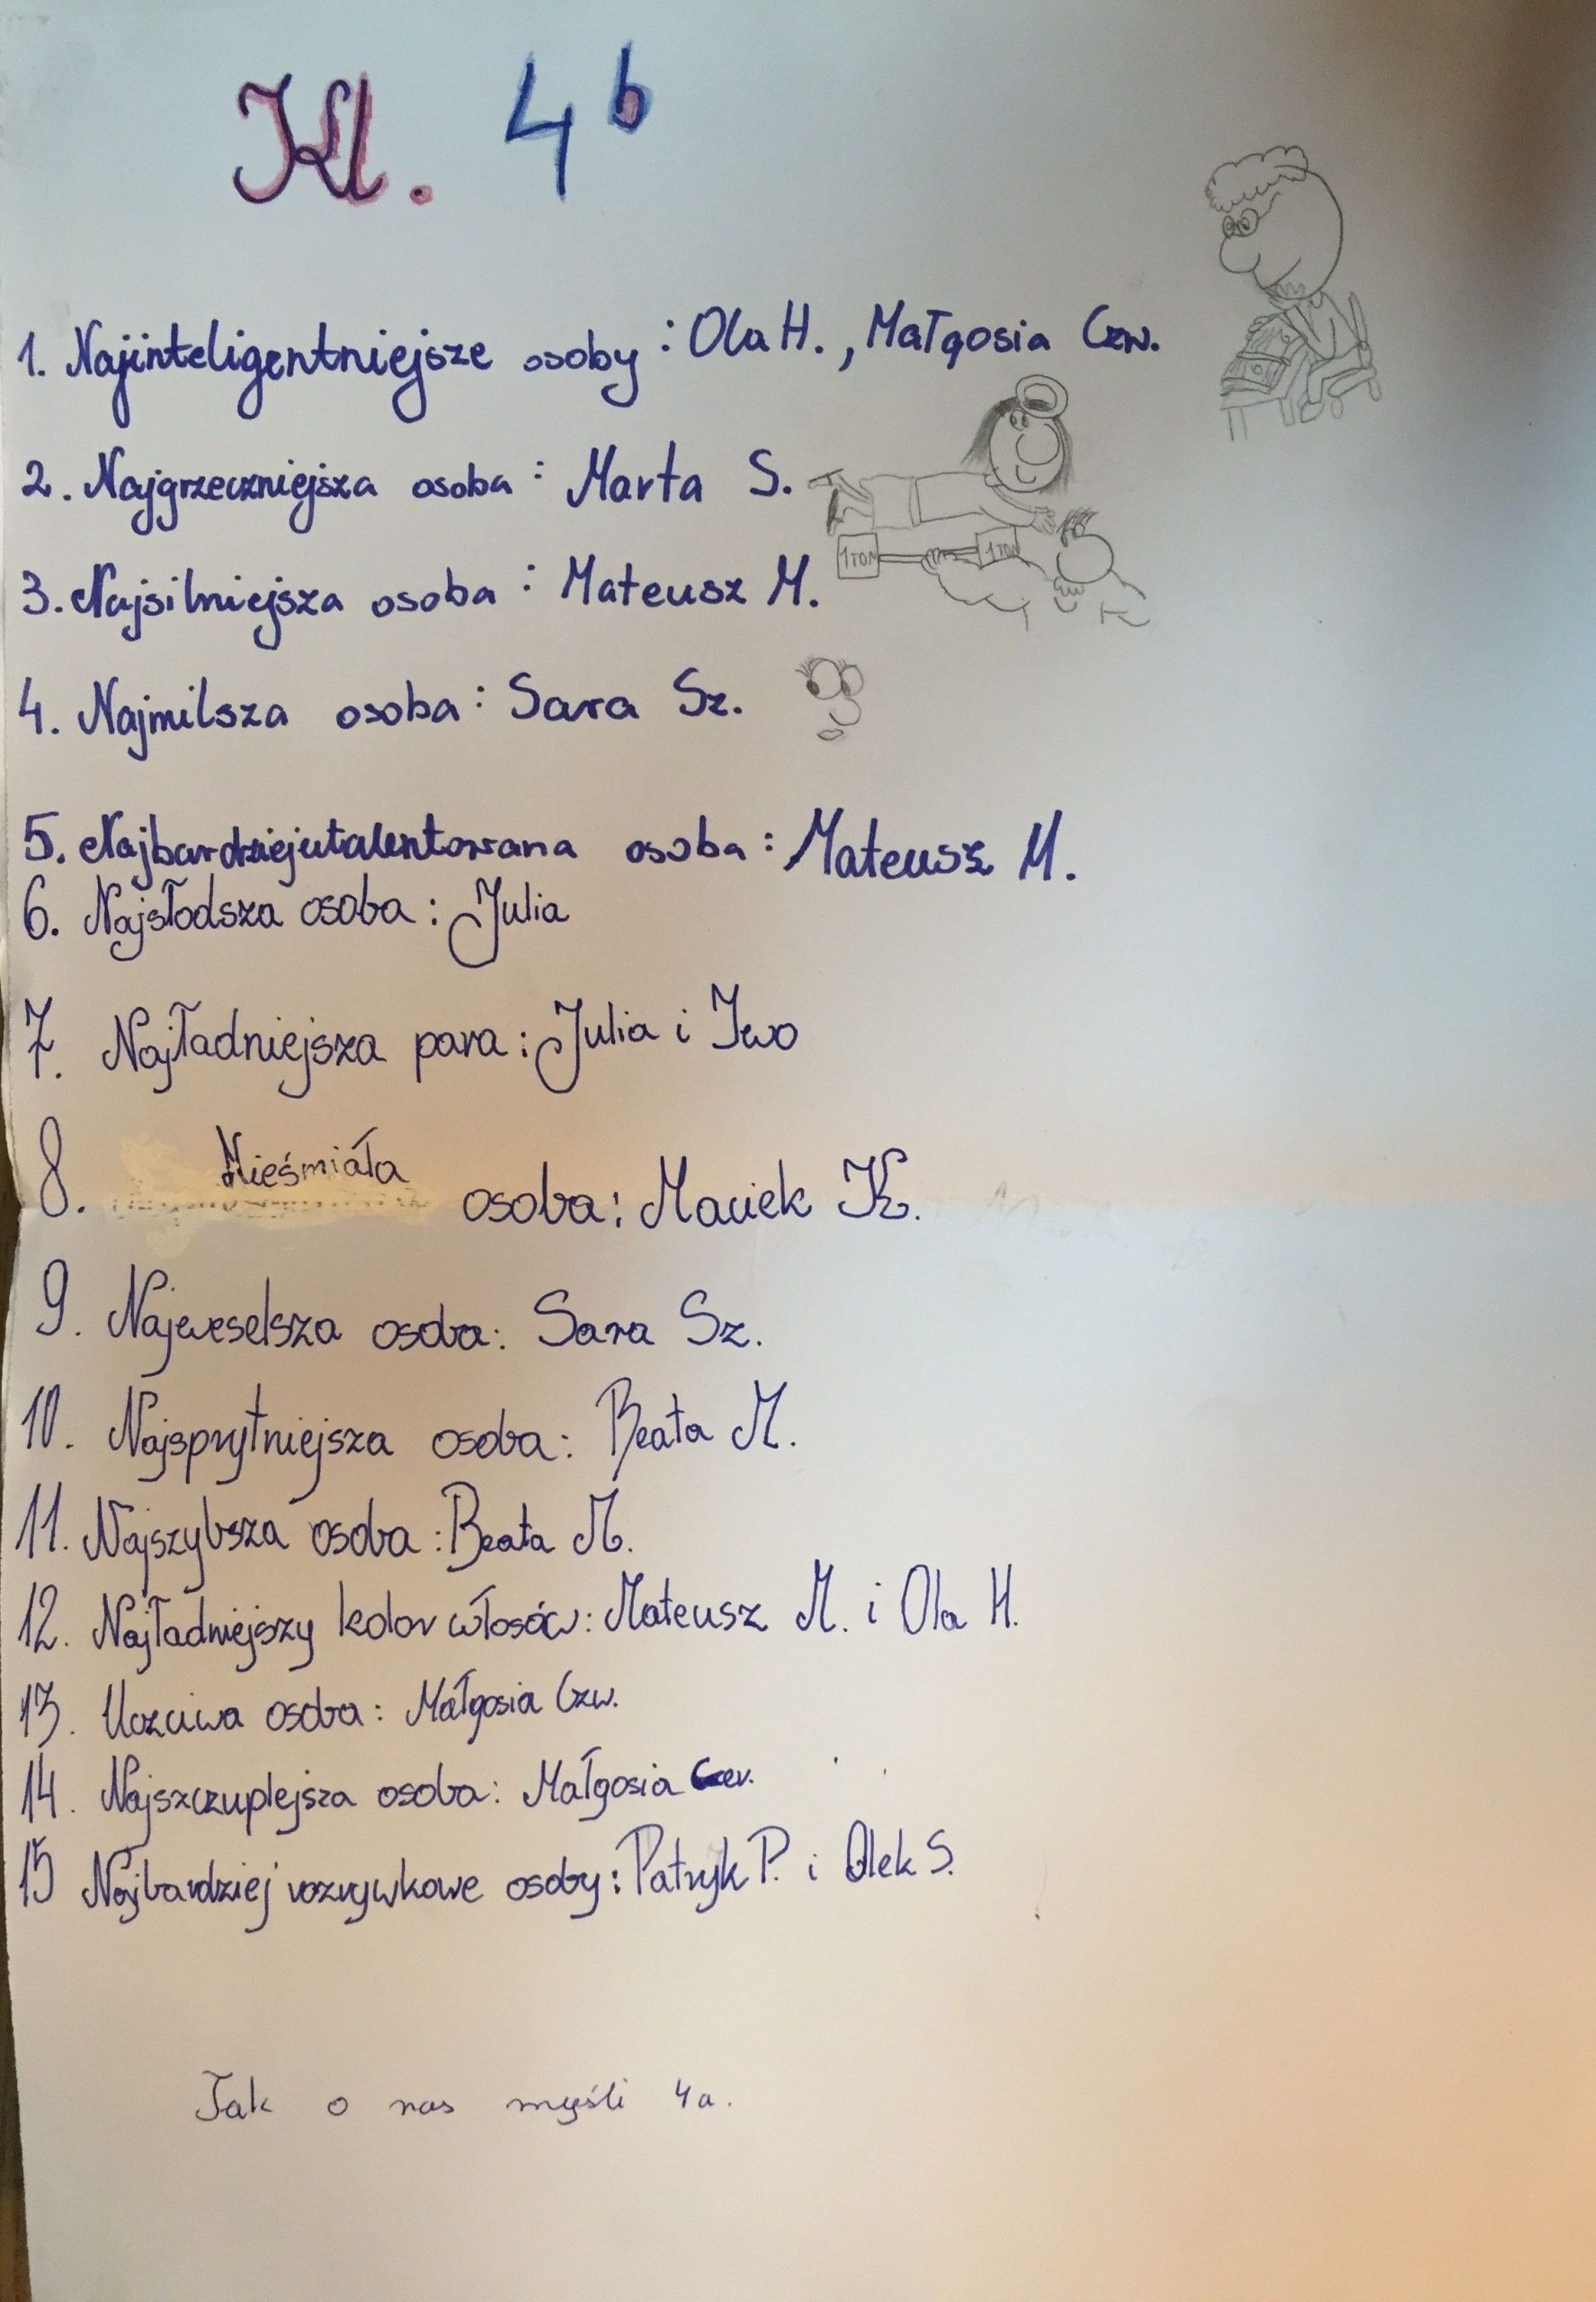 Kl. 4b
1. Najinteligentniejsze osoby : Ola H., Małgosia Czw.
2. Najgrzeczniejsza osoba : Marta S.
1 TON 1 TON
3. Najsilniejsza osoba : Mateusz M.
4. Najmilsza osoba : Sara Sz.
5. Najbardziejutalentowana osoba : Mateusz M.
6. Najsłodsza osoba : Julia
7. Najładniejsza para : Julia i Iwo
8. Nieśmiała osoba : Maciek K.
9. Najweselsza osoba : Sara Sz.
10. Najsprytniejsza osoba : Beata M.
11. Najszybsza osoba : Beata M.
12. Najładniejszy kolor włosów : Mateusz M. i Ola H.
13. Uczciwa osoba : Małgosia Czw.
14. Najszczuplejsza osoba : Małgosia
15 Najbardziej rozrywkowe osoby : Patryk P. i Olek S.
Tak o nas myśli 4a.